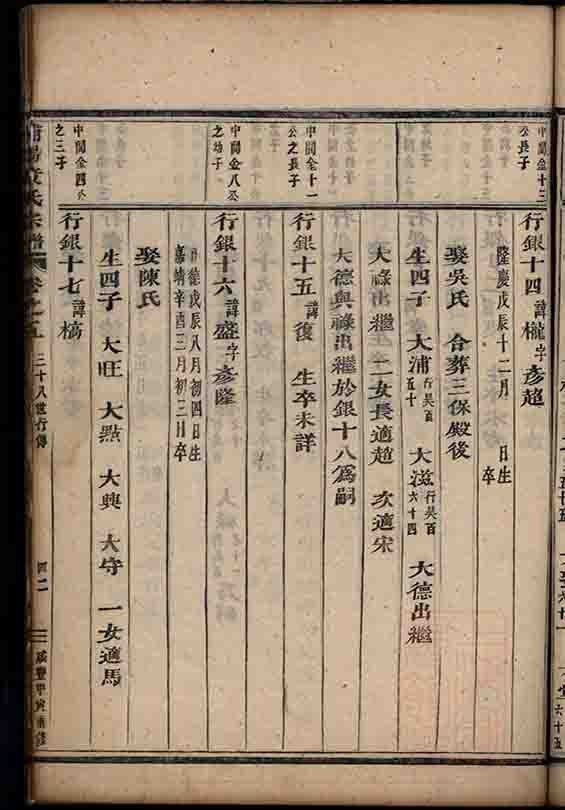 中間金十三
公長子
行銀十四 諱櫳字彥趙
隆慶戊辰十二月 日生
卒
娶吳氏 合葬三保殿後
生四子 大浦 行吳百五十 大滋 行吳百六十四 大德出繼
大祿出繼 二女長適趙 次適宋
大德與祿出繼於銀十八為嗣
中間金十一
公之長子
行銀十五 諱復 生卒未詳
中間金八公
之幼子
行銀十六 諱盛字彥隆
正德戊辰八月初四日生
嘉靖辛酉三月初三日卒
娶陳氏
生四子 大旺 大點 大興 大守 一女適馬
中間金四公
之三子
行銀十七 諱槁
氏宗譜 卷之五 三十八世行傳 四二 咸豐甲寅重修